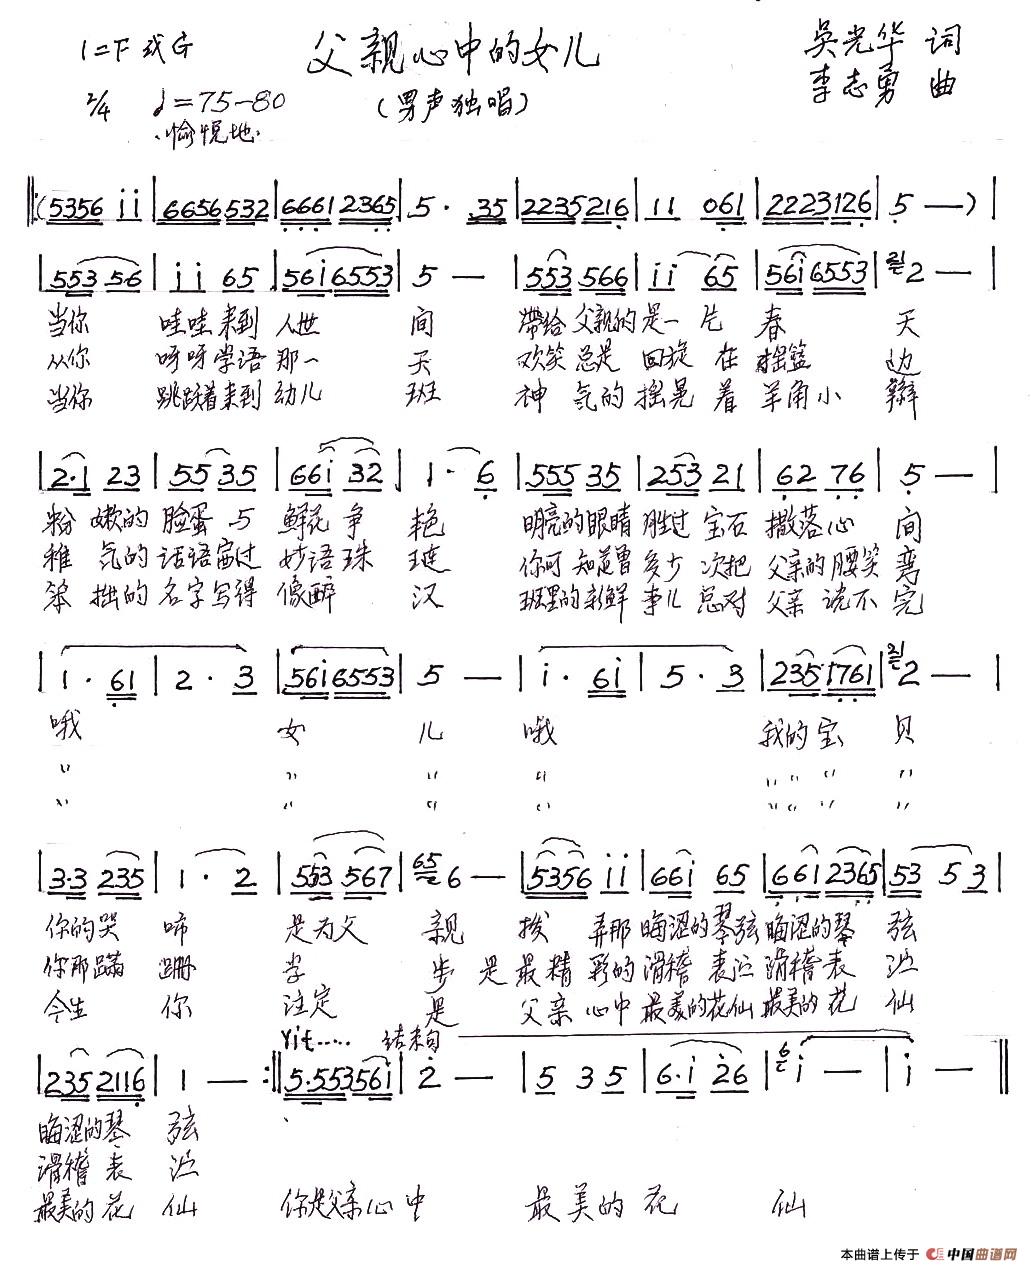 1=F 或 G
父亲心中的女儿
吴光华 词
2/4 ♩=75-80
(男声独唱)
李志勇 曲
愉悦地
‖:(5356 i i | 6656 532 | 6661 2365 | 5· 35 | 2235 216 | 11 061 | 2223 126 | 5 — ) |
| 553 5·6 | i i 65 | 56i 6553 | 5 — | 553 566 | i i 65 | 56i 6553 | 21 2 — |
当你 哇哇来到 人世 间 带给 父亲的 是一 片 春 天
从你 呀呀学语 那一 天 欢笑 总是 回旋 在 摇篮 边
当你 跳跃着来到 幼儿 班 神 气的 摇晃 着 羊角小 辫
| 2·1 23 | 55 35 | 66i 32 | 1· 6 | 555 35 | 253 21 | 62 76 | 5 — |
粉 嫩的 脸蛋 与 鲜花 争 艳 明亮的眼睛 胜过 宝石 撒落心 间
稚 气的 话语富过 妙语 珠 琏 你可 知道曾 多少 次把 父亲的 腰笑 弯
笨 拙的 名字写得 像醉 汉 班里的新鲜 事儿 总对 父亲 说不 完
| 1· 61 | 2· 3 | 56i 6553 | 5 — | i· 6i | 5· 3 | 235 1761 | 21 2 — |
哦 女 儿 哦 我的 宝 贝
〃 〃 〃 〃 〃 〃 〃 〃
〃 〃 〃 〃 〃 〃 〃 〃
| 3·3 235 | 1· 2 | 553 567 | 65 6 — | 5356 i i | 66i 65 | 66i 2365 | 53 5 3 |
你的哭 啼 是为父 亲 拨 弄那 晦涩的琴弦 晦涩的琴 弦
你那蹒 跚 学 步 是 最 精 彩的 滑稽 表演 滑稽 表 演
今生 你 注定 是 父亲 心中 最美的花仙 最美的 花 仙
Yit..... 结束句
| 235 2116 | 1 — :‖ 5·55356i | 2 — | 5 3 5 | 6·i 26 | 6 i — | i — ‖
晦涩的琴 弦
滑稽 表 演
最美的 花 仙 你是父亲 心 中 最 美 的 花 仙
本曲谱上传于 中国曲谱网